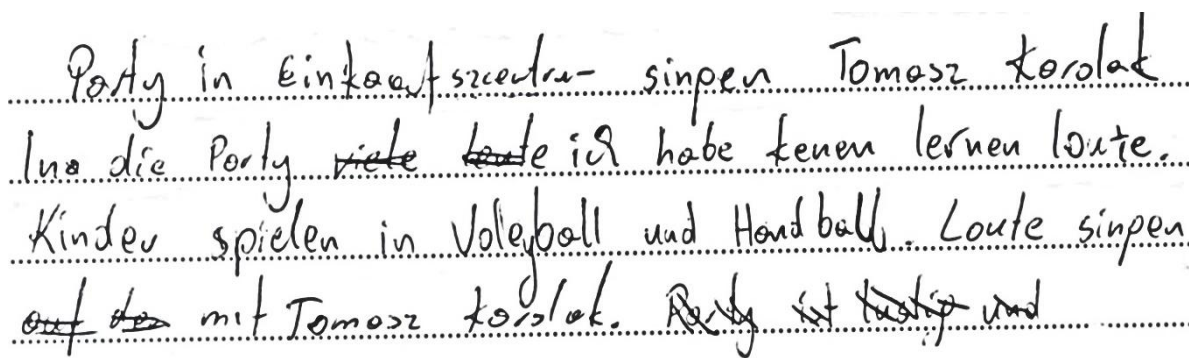 Party in Einkaufszcentru- singen Tomasz Karolak
In die Party viele leute ich habe kenen lernen loute.
Kinder spielen in Voleyball und Handball. Loute singen
auf das mit Tomasz Karolak. Party ist lustig und